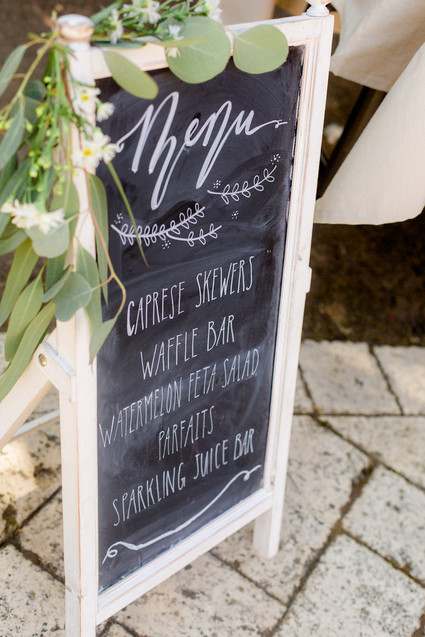 Menu
CAPRESE SKEWERS
WAFFLE BAR
WATERMELON FETA SALAD
PARFAITS
SPARKLING JUICE BAR